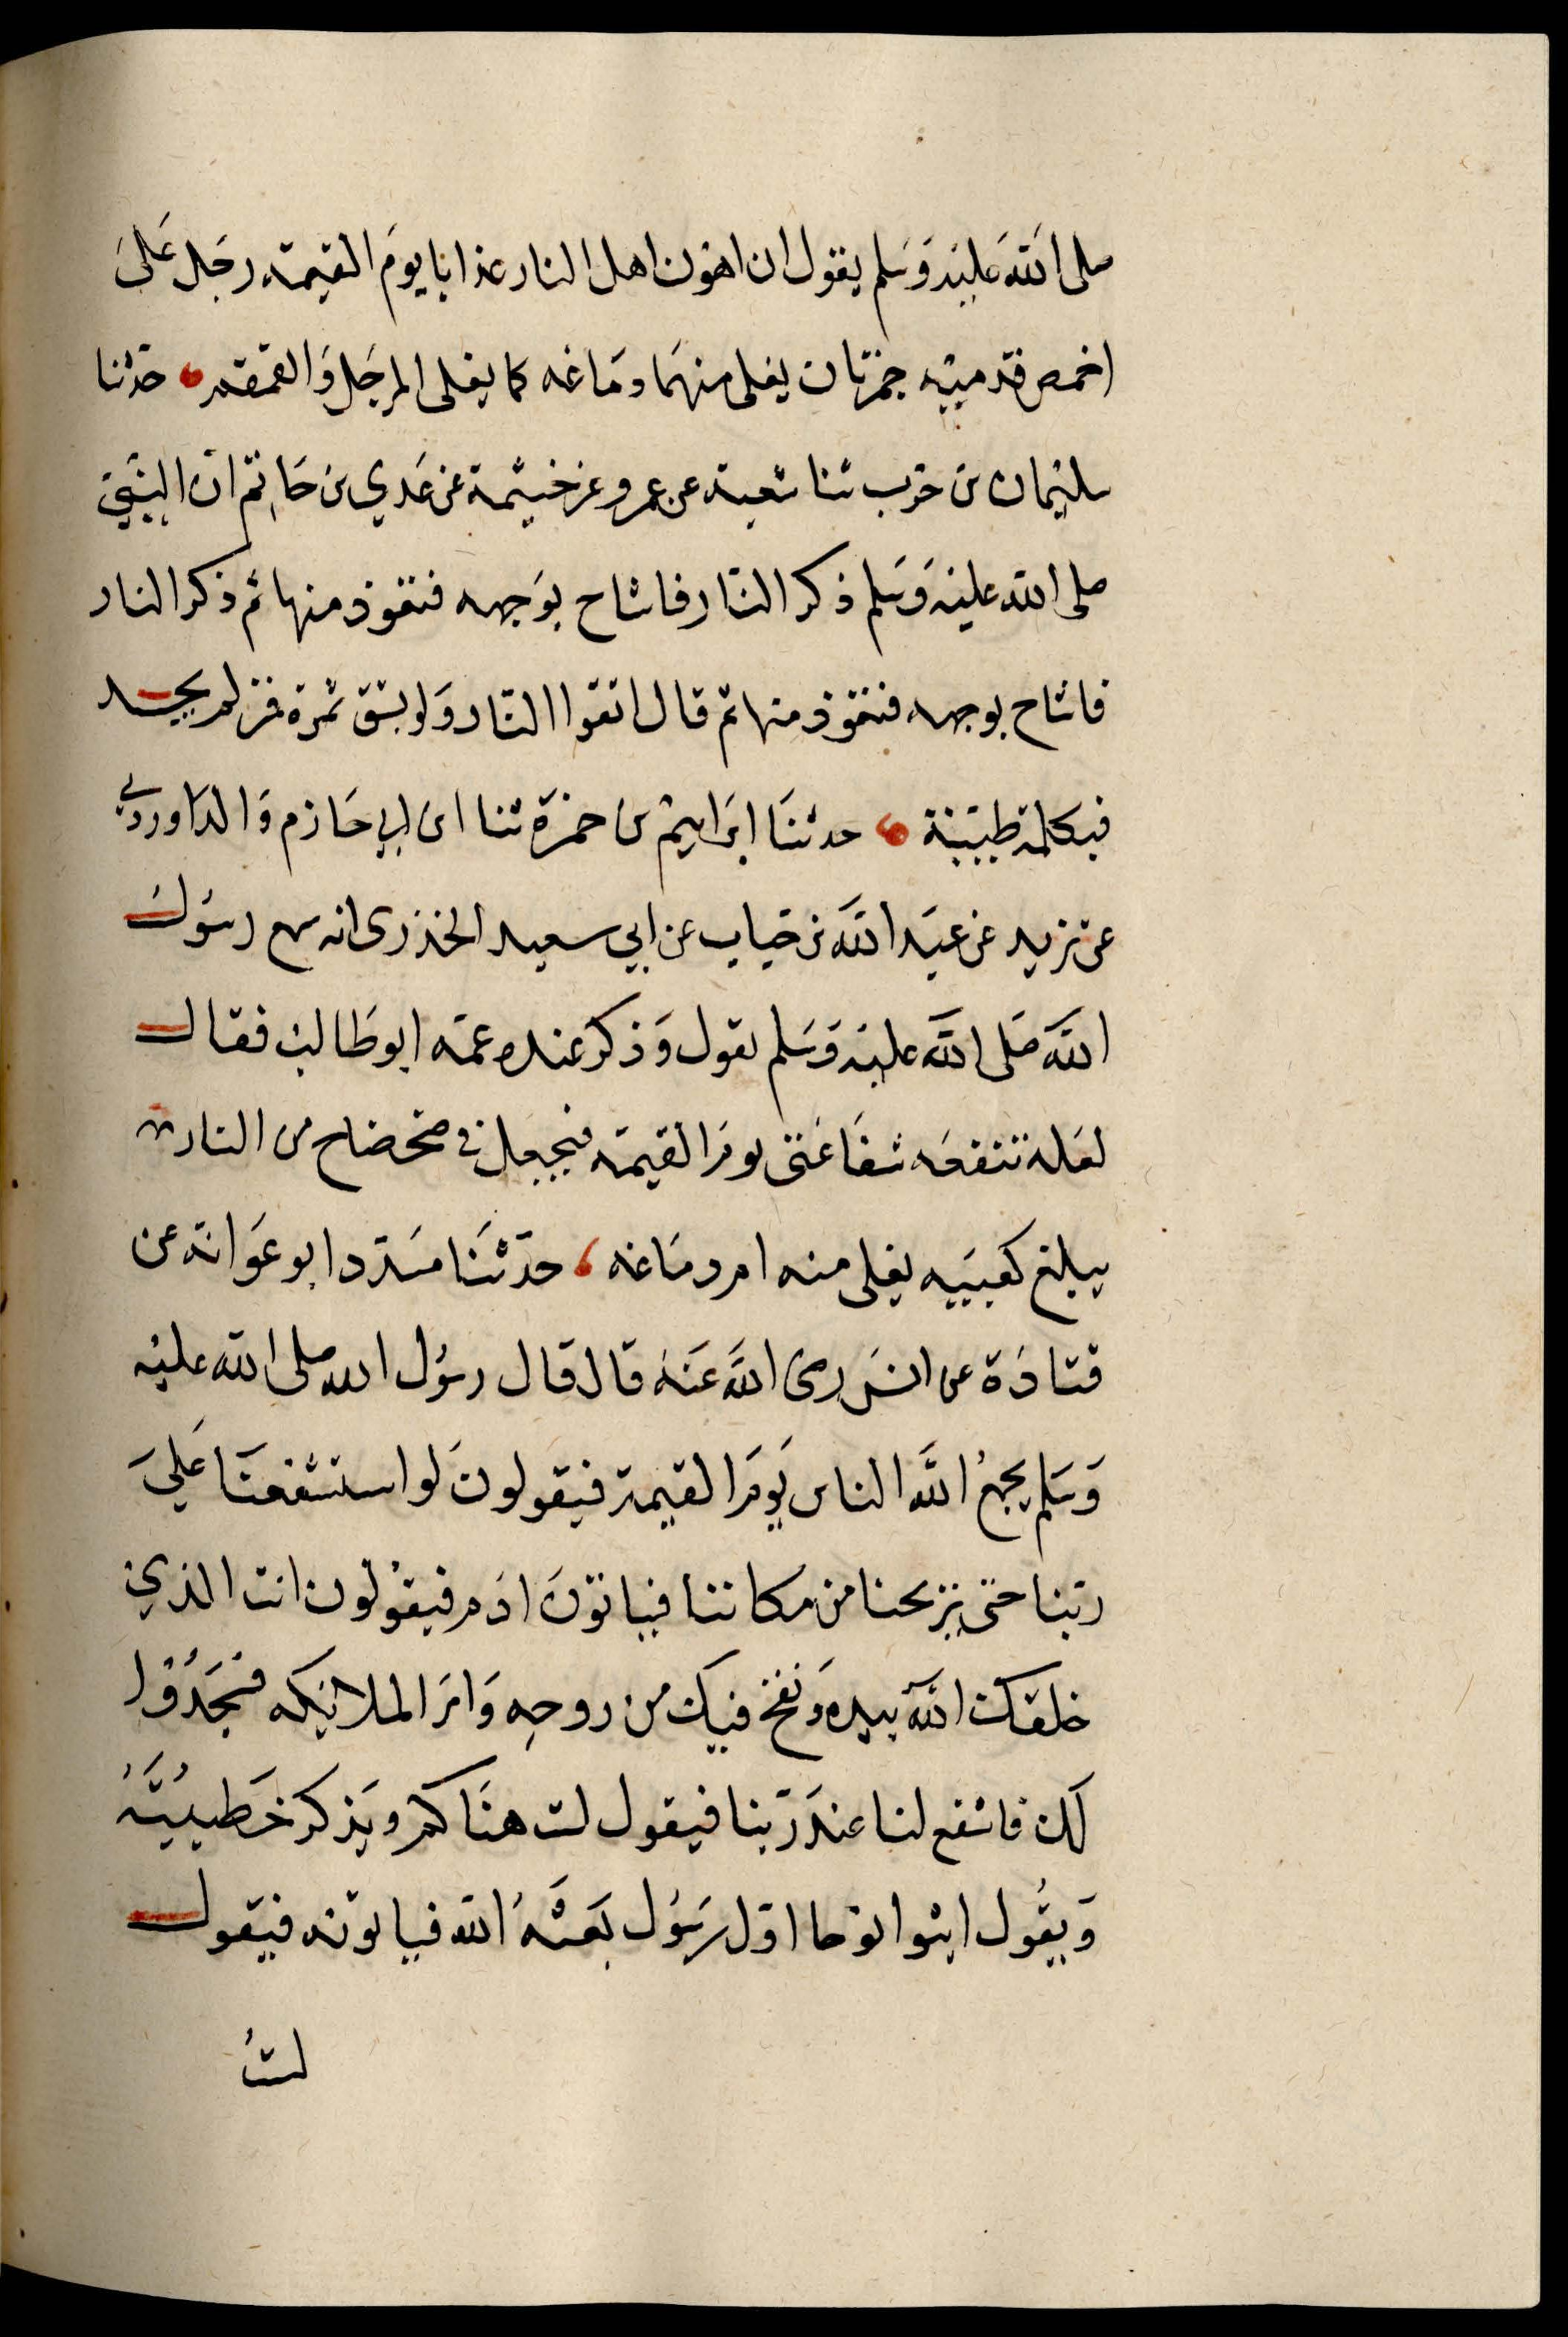 صلى الله عليه وسلم يقول ان اهون اهل النار عذابا يوم القيمة رجل على
اخمص قدميه جمرتان يغلى منهما دماغه كما يغلى المرجل والقمقم حدثنا
سليمان بن حرب ثنا شعبة عن عمرو عن خيثمة عن عدي بن حاتم ان النبي
صلى الله عليه وسلم ذكر النار فاشاح بوجهه فتعوذ منها ثم ذكر النار
فاشاح بوجهه فتعوذ منها ثم قال اتقوا النار ولو بشق تمرة فمن لم يجد
فبكلمة طيبة حدثنا ابراهيم بن حمزة ثنا ابن ابي حازم والدراوردي
عن يزيد عن عبد الله بن خباب عن ابي سعيد الخدرى انه سمع رسول
الله صلى الله عليه وسلم يقول وذكر عنده عمه ابو طالب فقال
لعله تنفعه شفاعتى يوم القيمة فيجعل في ضحضاح من النار
يبلغ كعبيه يغلى منه ام دماغه حدثنا مسدد ابو عوانة عن
قتادة عن انس رضى الله عنه قال قال رسول الله صلى الله عليه
وسلم يجمع الله الناس يوم القيمة فيقولون لو استشفعنا على
ربنا حتى يريحنا من مكاننا فياتون ادم فيقولون انت الذي
خلقك الله بيده ونفخ فيك من روحه وامر الملائكه فسجدوا
لك فاشفع لنا عند ربنا فيقول لست هناكم ويذكر خطيئته
ويقول ائتوا نوحا اول رسول بعثه الله فياتونه فيقول
لست